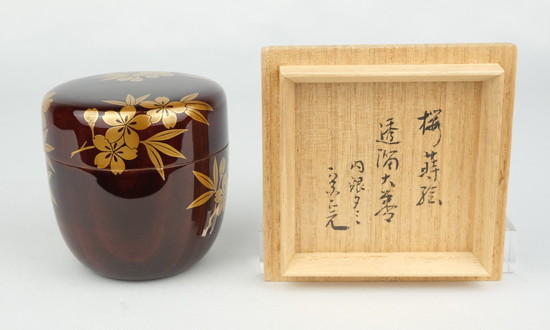 桜蒔絵
透溜大棗
内銀タミ